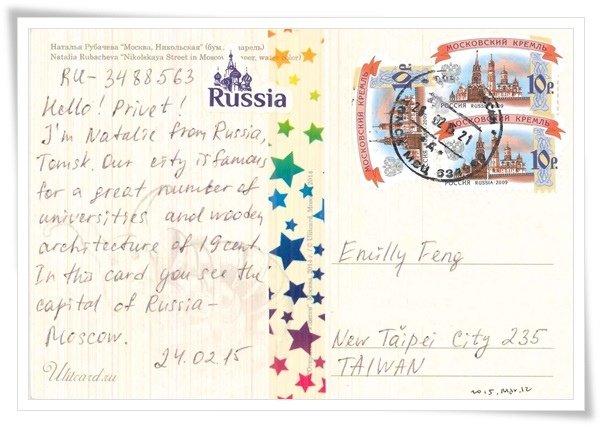 Наталья Рубачева "Москва, Никольская" (бум., акварель)
Natalia Rubacheva "Nikolskaya Street in Moscow" water color)
RU-3488563
Russia
Hello! Privet!
I'm Natalie from Russia,
Tomsk. Our city is famous
for a great number of
universities and wooden
architecture of 19 cent.
In this card you see the
capital of Russia -
Moscow.
24.02.15
Ulitcard.ru
МОСКОВСКИЙ КРЕМЛЬ
10р.
РОССИЯ RUSSIA 2009
МОСКОВСКИЙ КРЕМЛЬ
10р.
РОССИЯ RUSSIA-2009
МОСКОВСКИЙ КРЕМЛЬ
10р.
Emilly Feng
New Taipei City 235
TAIWAN
2015. Mar. 12